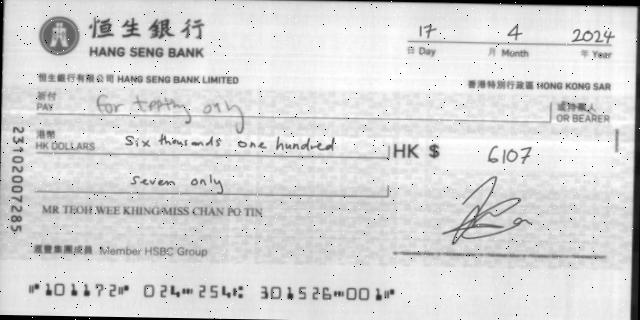 恒生銀行
HANG SENG BANK
17 4 2024
日 Day 月 Month 年 Year
恒生銀行有限公司 HANG SENG BANK LIMITED
香港特別行政區 HONG KONG SAR
祈付
PAY for testing only 或持票人
OR BEARER
港幣
HK DOLLARS six thousands one hundred
HK $ 6107
seven only
MR TEOH WEE KHING/MISS CHAN PO TIN
滙豐集團成員 Member HSBC Group
23102007285
⑈101172⑈ 024⑉254⑆ 301526⑉001⑈